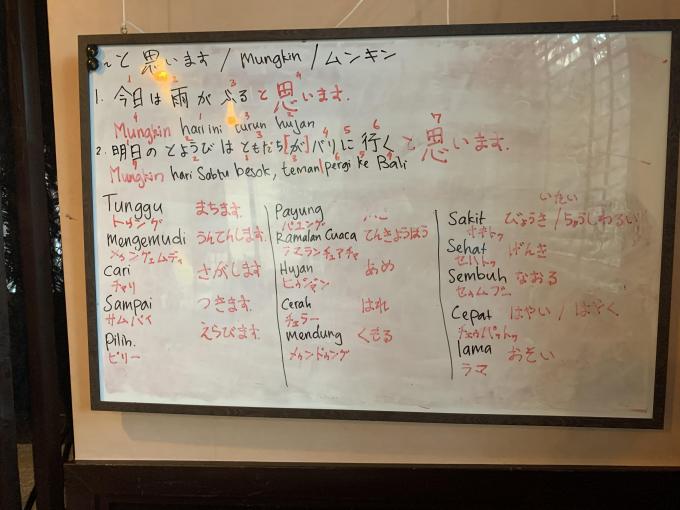 〜と思います / Mungkin / ムンキン
1. 今日は雨がふると思います.
Mungkin hari ini turun hujan
2. 明日のどようびはともだちがバリに行くと思います.
Mungkin hari Sabtu besok, teman pergi ke Bali
Tunggu まちます.
トゥング
mengemudi うんてんします.
ムンゲムディ
Cari さがします
チャリ
Sampai つきます.
サムパイ
Pilih. えらびます.
ピリー
Payung
パユング
Ramalan Cuaca てんきようほう
ラマランチュアチャ
Hujan あめ
Cerah はれ
チェラー
mendung くもる
ムンドゥング
いたい
Sakit びょうき / ちょうしわるい
Sehat げんき
セハトゥ
Sembuh なおる
セゥムブー
Cepat はやい / はやく
チェゥパットゥ
lama おそい
ラマ